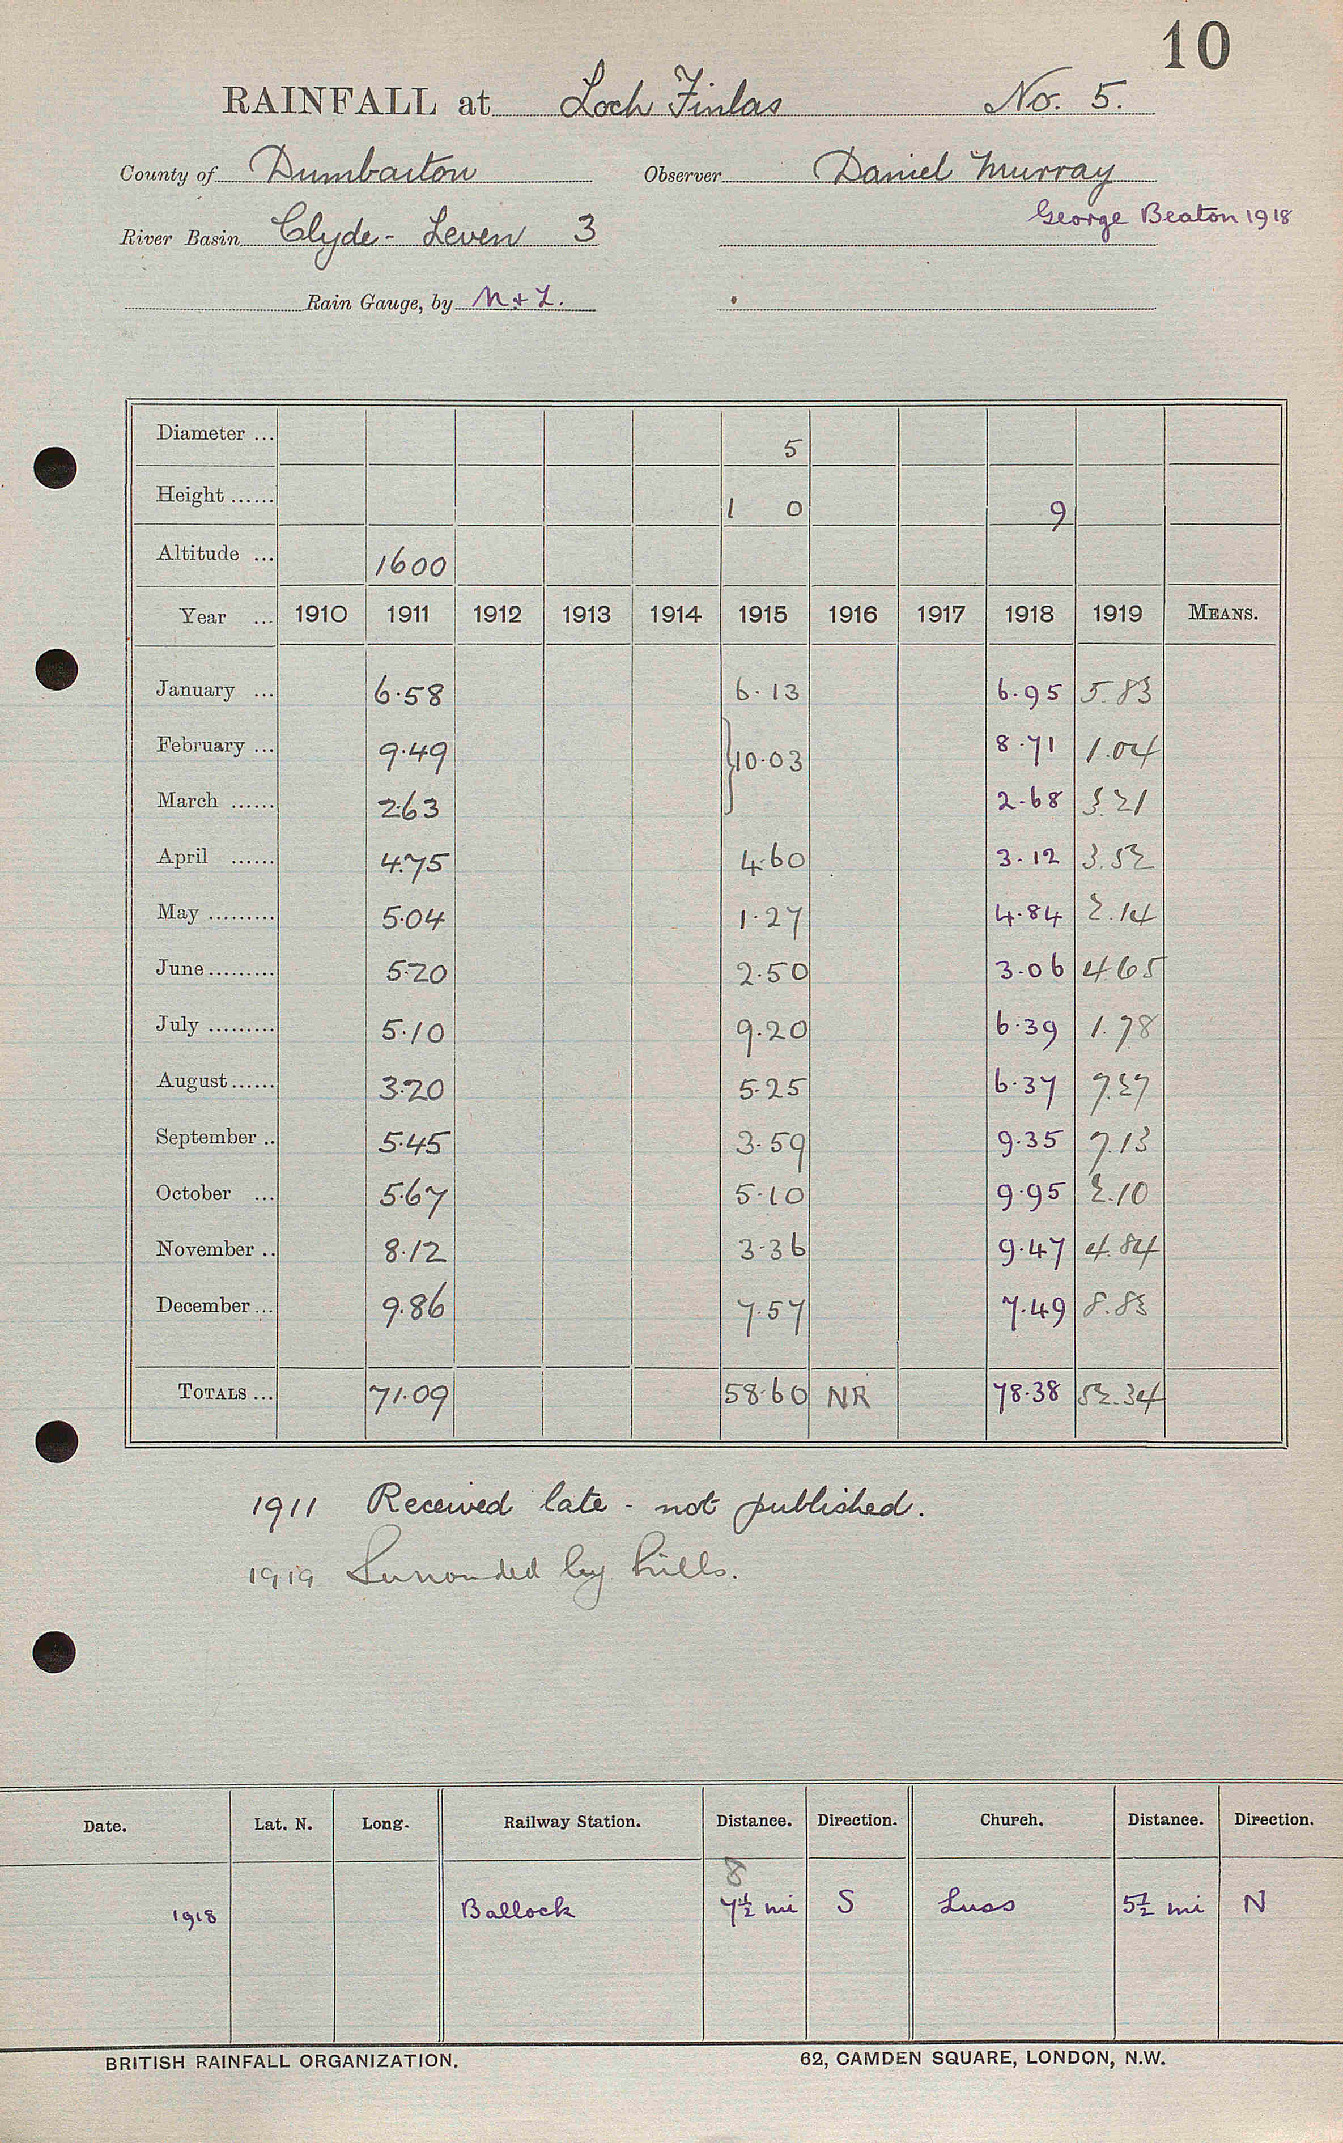 10
RAINFALL at Loch Finlas No. 5.
County of Dumbarton Observer Daniel Murray
George Beaton 1918
River Basin Clyde - Leven 3
Rain Gauge, by N & Z.
Diameter ... 5
Height ...... 1 0 9
Altitude ... 1600
Year ... 1910 1911 1912 1913 1914 1915 1916 1917 1918 1919 MEANS.
January ... 6.58 6.13 6.95 5.83
February ... 9.49 } 10.03 8.71 1.04
March ...... 2.63 2.68 3.21
April ...... 4.75 4.60 3.12 3.52
May ......... 5.04 1.27 4.84 2.14
June ......... 5.20 2.50 3.06 4.65
July ......... 5.10 9.20 6.39 1.78
August ...... 3.20 5.25 6.37 7.27
September .. 5.45 3.59 9.35 7.13
October ... 5.67 5.10 9.95 2.10
November .. 8.12 3.36 9.47 4.84
December ... 9.86 7.57 7.49 8.83
TOTALS ... 71.09 58.60 NR 78.38 52.34
1911 Received late - not published.
1919 Surrounded by hills.
Date. Lat. N. Long. Railway Station. Distance. Direction. Church. Distance. Direction.
8
1918 Ballock 7½ mi S Luss 5½ mi N
BRITISH RAINFALL ORGANIZATION. 62, CAMDEN SQUARE, LONDON, N.W.